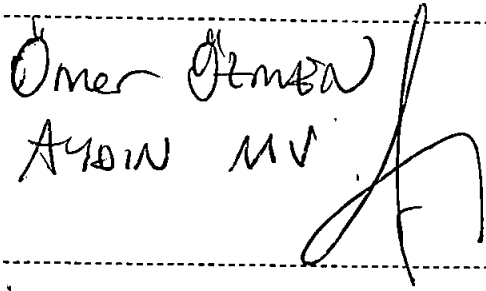 Ömer ÖZMEN
AYDIN MV.